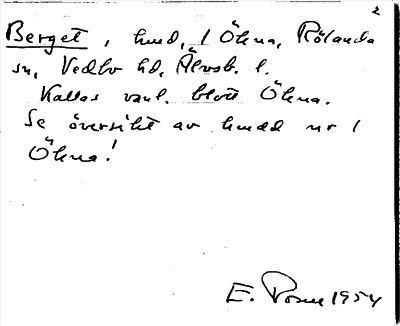 2
Berget, hmd, 1 Öhna, Rölanda
sn, Vedbo hd, Älvsb. l.
Kallas vanl. blott Öhna.
Se översikt av hmdd nr 1
Öhna!
E. 1954